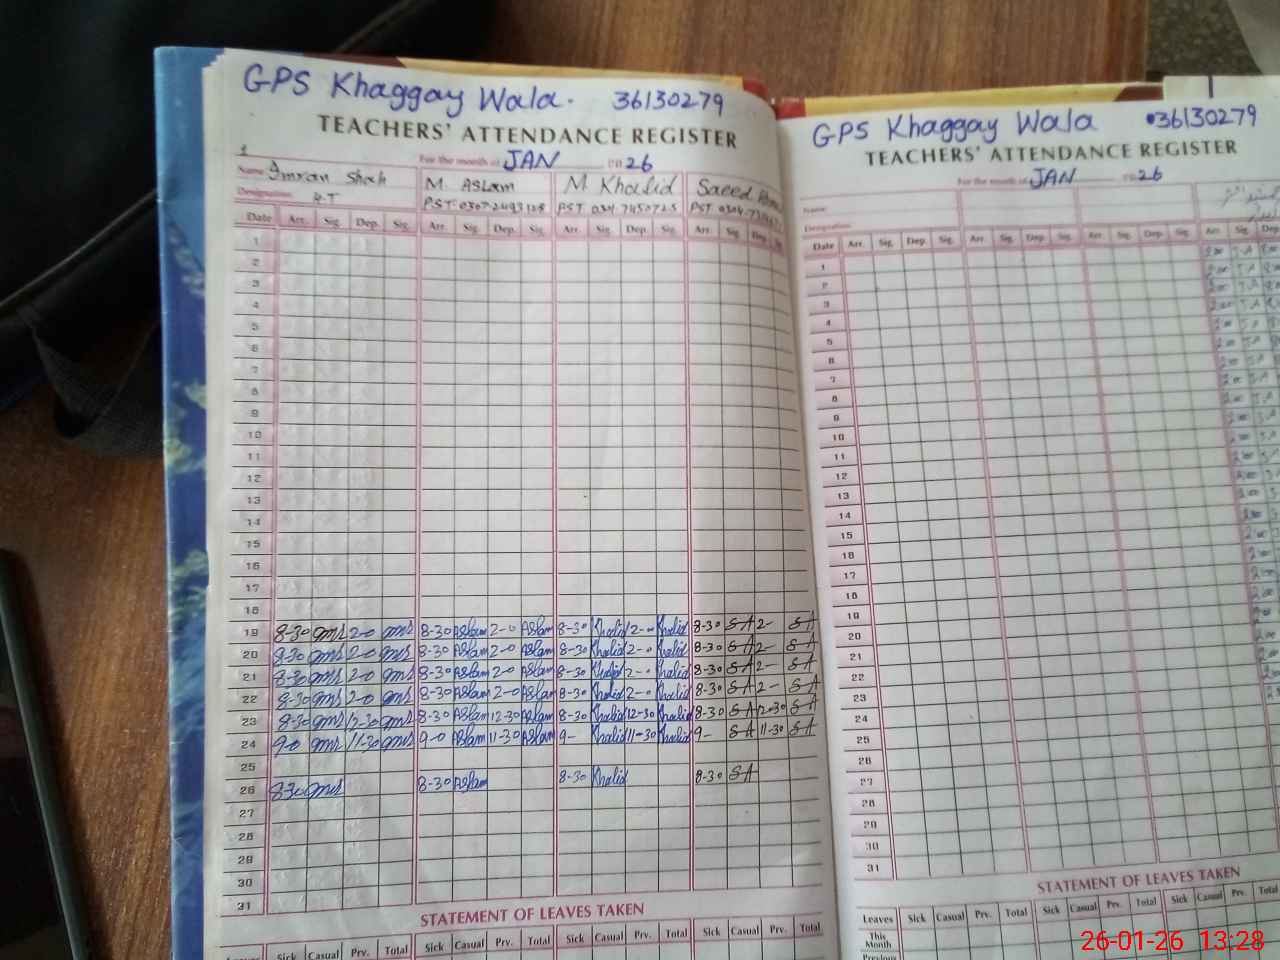 GPS Khaggay Wala. 36130279
TEACHERS' ATTENDANCE REGISTER
For the month of JAN 26
1
Name Imran Shah M. ASLam M. Khalid Saeed
Designation PST. PST. PST.
Date Arr. Sig. Dep. Sig. Arr. Sig. Dep. Sig. Arr. Sig. Dep. Sig. Arr. Sig. Dep. Sig.
1
2
3
4
5
6
7
8
9
10
11
12
13
14
15
16
17
18
19 8-30 2-0 8-30 Aslam 2-0 Aslam 8-30 Khalid 2-0 Khalid 8-30 S-A 2- S-A
20 8-30 2-0 8-30 Aslam 2-0 Aslam 8-30 Khalid 2-0 Khalid 8-30 S-A 2- S-A
21 8-30 2-0 8-30 Aslam 2-0 Aslam 8-30 Khalid 2-0 Khalid 8-30 S-A 2- S-A
22 8-30 2-0 8-30 Aslam 2-0 Aslam 8-30 Khalid 2-0 Khalid 8-30 S-A 2- S-A
23 8-30 12-30 8-30 Aslam 12-30 Aslam 8-30 Khalid 12-30 Khalid 8-30 S-A 12-30 S-A
24 9-0 11-30 9-0 Aslam 11-30 Aslam 9- Khalid 11-30 Khalid 9- S-A 11-30 S-A
25
26 8-30 8-30 Aslam 8-30 Khalid 8-30 S-A
27
28
29
30
31
STATEMENT OF LEAVES TAKEN
Leaves Sick Casual Prv. Total Sick Casual Prv. Total Sick Casual Prv. Total Sick Casual Prv. Total
GPS Khaggay Wala 36130279
TEACHERS' ATTENDANCE REGISTER
For the month of JAN 26
Name
Designation
Date Arr. Sig. Dep. Sig. Arr. Sig. Dep. Sig. Arr. Sig. Dep. Sig. Arr. Sig. Dep
1
2
3
4
5
6
7
8
9
10
11
12
13
14
15
16
17
18
19
20
21
22
23
24
25
26
27
28
29
30
31
STATEMENT OF LEAVES TAKEN
Leaves Sick Casual Prv. Total Sick Casual Prv. Total Sick Casual Prv. Total
This Month
Previous
26-01-26 13:28